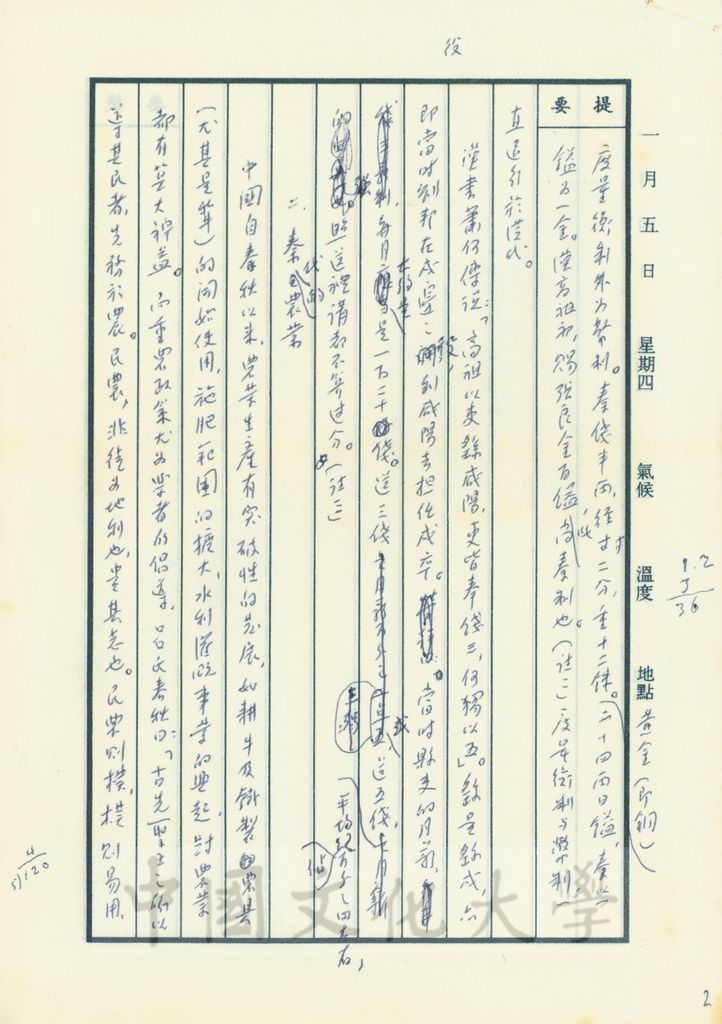 一月五日 星期四 氣候 溫度 地點
提要
黃金(即銅)
度量衡制外為幣制。秦錢半兩,徑寸二分,重十二銖。二十四兩曰鎰,秦以一
鎰為一金。漢高祖初,賜張良金百鎰,此尚秦制也。(註二)度量衡制與幣制一
直沿引於漢代。
漢書蕭何傳說:「高祖以吏繇咸陽,吏皆奉錢三,何獨以五」。繇是繇戍,亦
即當時劉邦在戍役,到咸陽去担任戍卒。當時縣吏的月薪,
每月大約是一百二十錢。送三錢 或送五錢,
平均佔百分之四左右,
照送禮講都不算過分。(註三)
二、秦代的農業
中國自春秋以來,農業生產有突破性的發展,如耕牛及鐵製農具
(尤其是犂)的開始使用,施肥範圍的擴大,水利灌溉事業的興起,對農業
都有莫大裨益。而重農政策尤為學者的倡導,呂氏春秋曰:「古先聖王之所以
導其民者,先務於農。民農,非徒為地利也,貴其志也。民農則樸,樸則易用,
役
1.2
3
36
4
5/120
中國文化大學
2